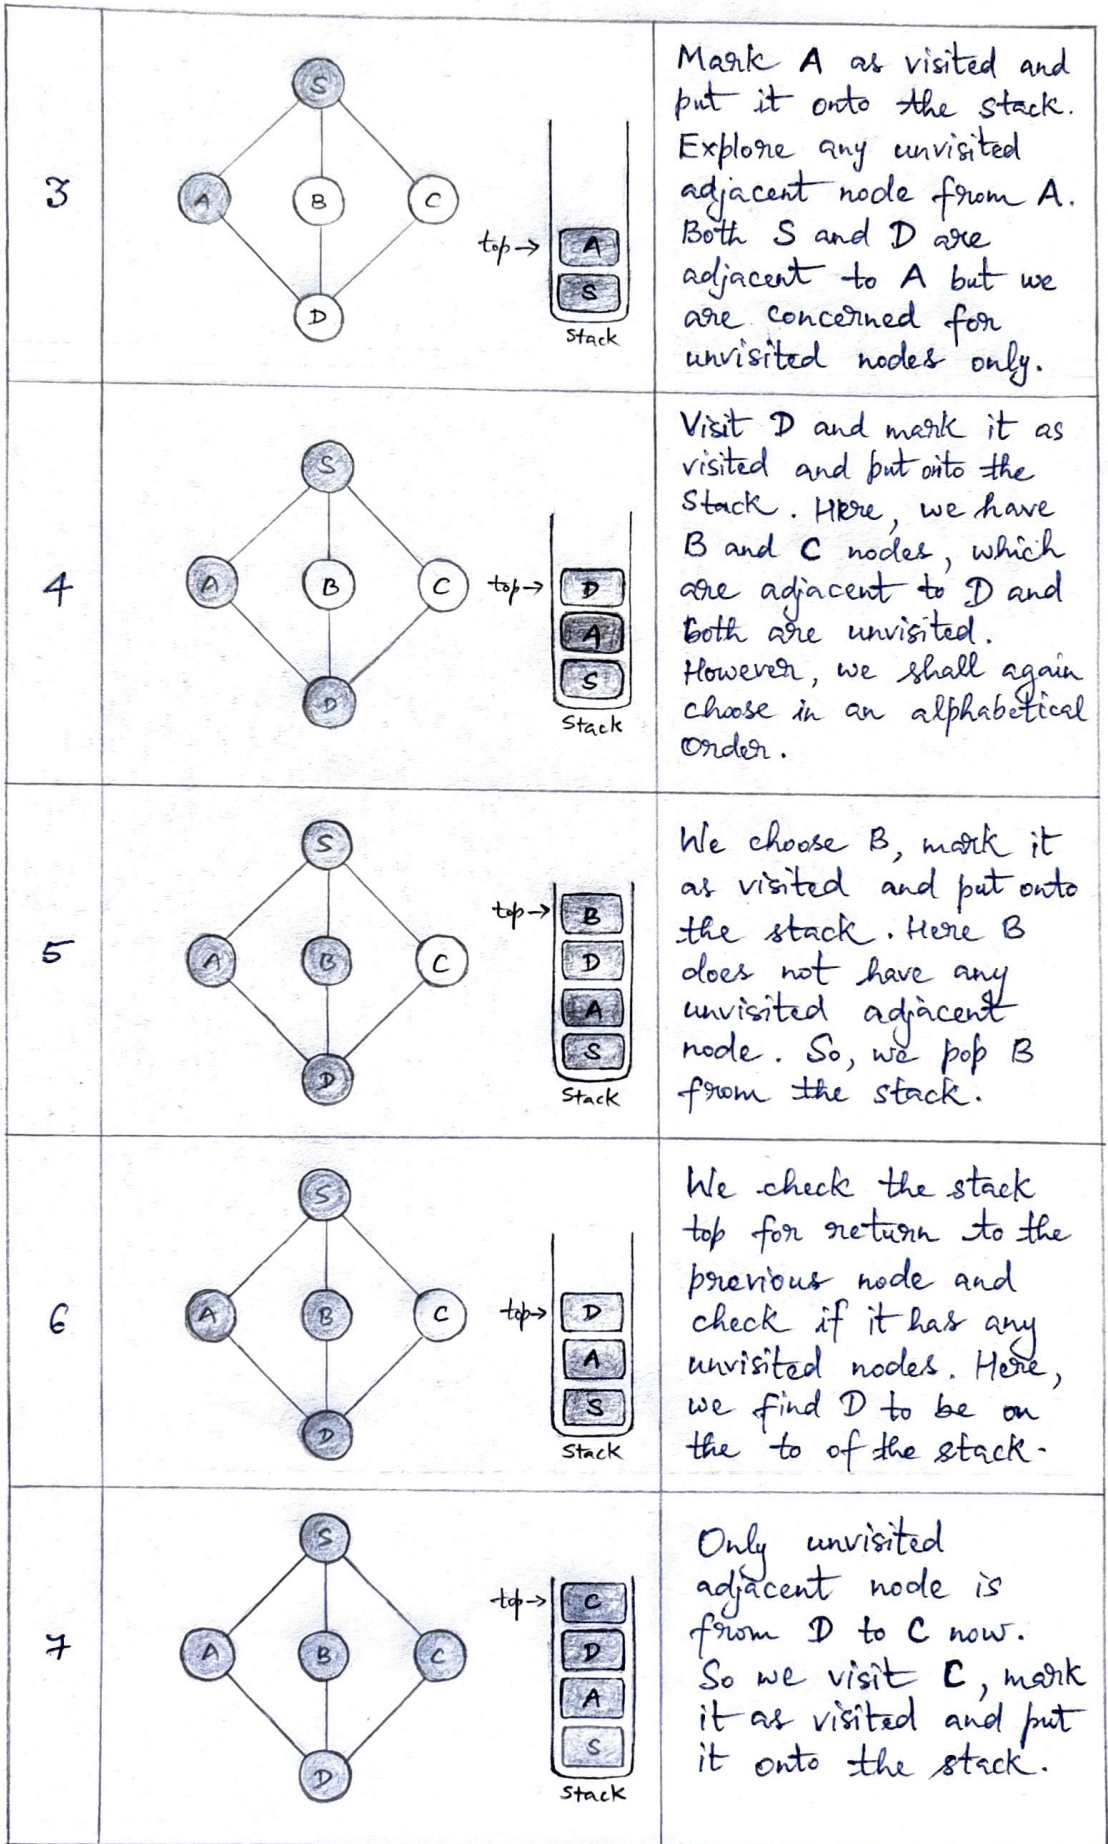 3
S
A
B
C
D
top→
A
S
Stack
Mark A as visited and
put it onto the stack.
Explore any unvisited
adjacent node from A.
Both S and D are
adjacent to A but we
are concerned for
unvisited nodes only.
4
S
A
B
C
D
top→
D
A
S
Stack
Visit D and mark it as
visited and put onto the
Stack. Here, we have
B and C nodes, which
are adjacent to D and
both are unvisited.
However, we shall again
choose in an alphabetical
order.
5
S
A
B
C
D
top→
B
D
A
S
Stack
We choose B, mark it
as visited and put onto
the stack. Here B
does not have any
unvisited adjacent
node. So, we pop B
from the stack.
6
S
A
B
C
D
top→
D
A
S
Stack
We check the stack
top for return to the
previous node and
check if it has any
unvisited nodes. Here,
we find D to be on
the to of the stack.
7
S
A
B
C
D
top→
C
D
A
S
Stack
Only unvisited
adjacent node is
from D to C now.
So we visit C, mark
it as visited and put
it onto the stack.